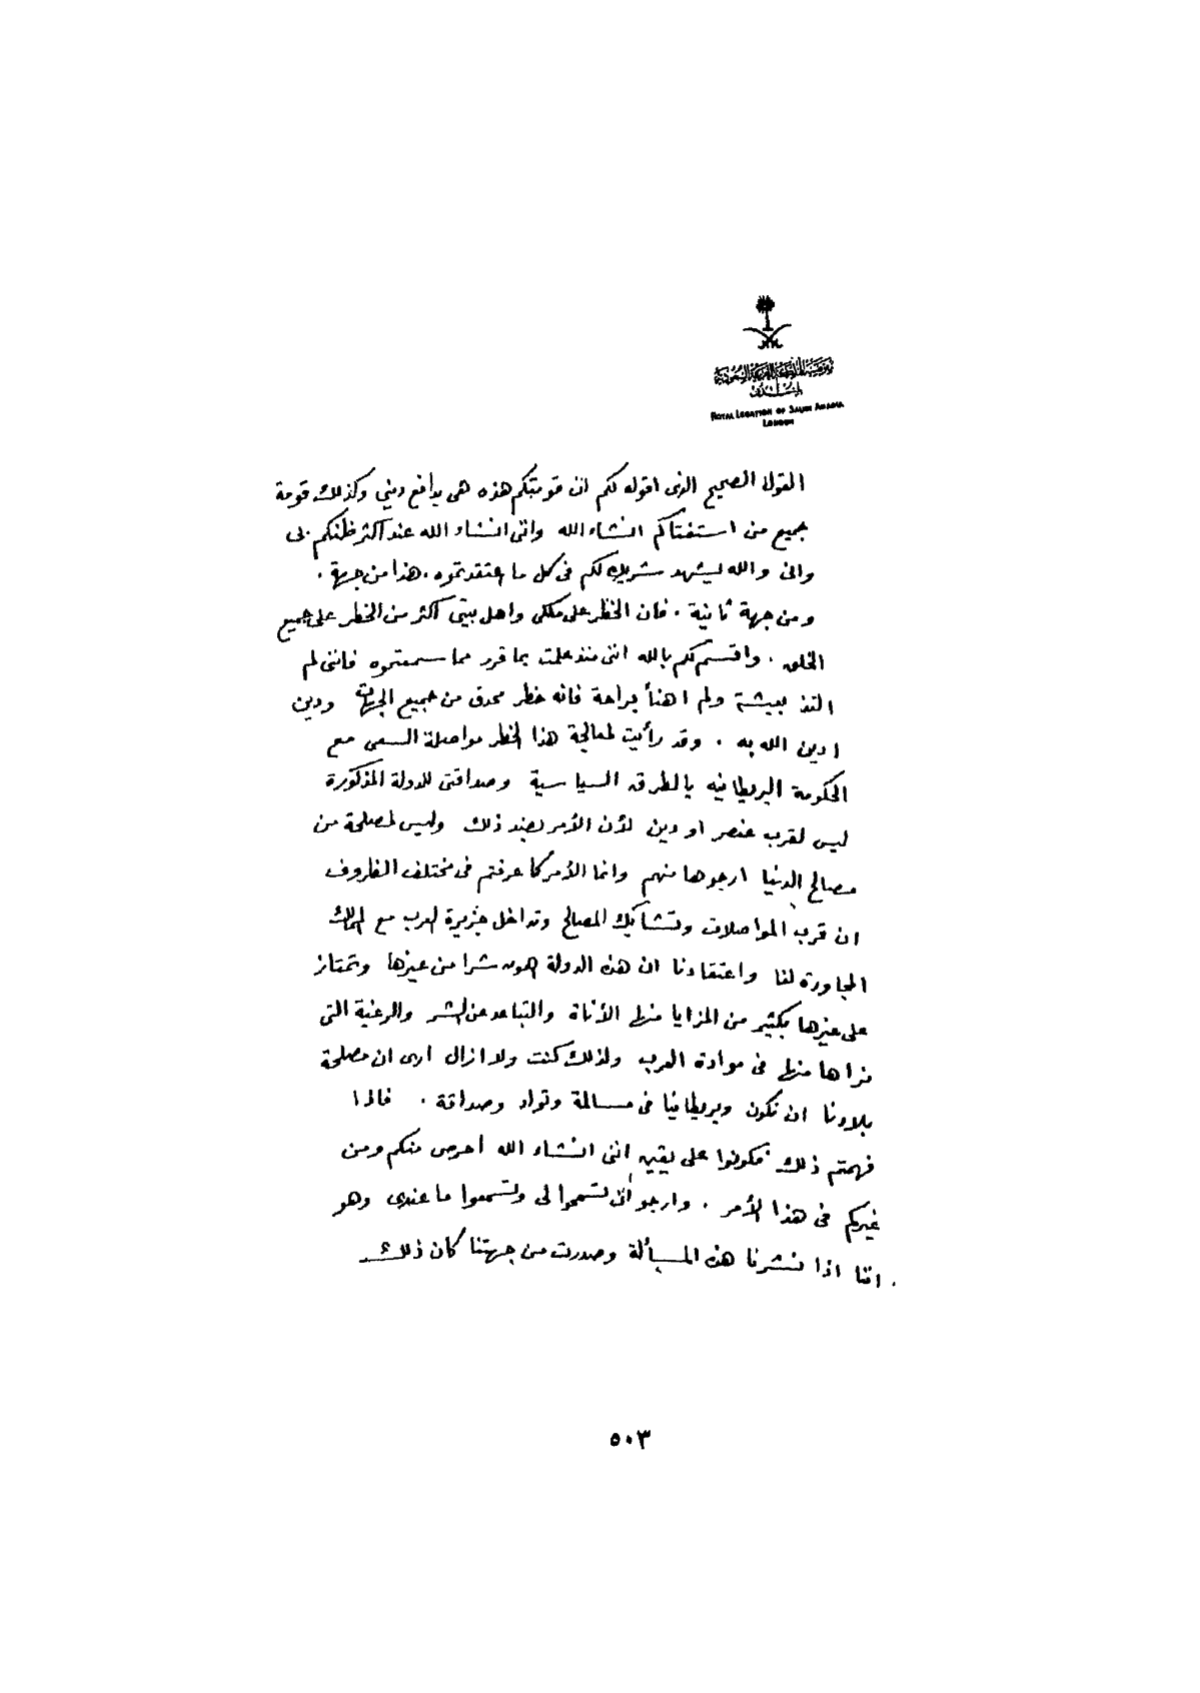 مفوضية المملكة العربية السعودية
لندن
ROYAL LEGATION OF SAUDI ARABIA
LONDON
القول الصحيح الذى اقوله لكم ان قومتكم هذه هى بدافع دينى وكذلك قومة
جميع من استفتاكم انشاء الله وانى انشاء الله عند اكثر ظنكم بى
وانى والله يشهد شريك لكم فى كل ما اعتقدتموه . هذا من جهة .
ومن جهة ثانية . فان الخطر على ملكى واهل بيتى اكثر من الخطر على جميع
الخلق . واقسم لكم بالله اننى منذ علمت بما قرر مما سمعتموه فاننى لم
التذ بعيشة ولم اهنأ براحة فانه خطر محدق من جميع الجهات ودين
ادين الله به . وقد رأيت لمعالجة هذا الخطر مواصلة السعى مع
الحكومة البريطانيه بالطرق السياسية وصداقتى للدولة المذكورة
ليس لقرب عنصر او دين لأن الأمر بضد ذلك وليس لمصلحة من
مصالح الدنيا ارجوها منهم وانما الأمر كما عرفتم فى مختلف الظروف
ان قرب المواصلات وتشابك المصالح وتداخل جزيرة العرب مع الممالك
المجاورة لنا واعتقادنا ان هذه الدولة اهون شرا من غيرها وتمتاز
على غيرها بكثير من المزايا منها الأناة والتباعد عن الشر والرغبة التى
نراها منها فى موادة العرب ولذلك كنت ولا ازال ارى ان مصلحة
بلادنا ان نكون وبريطانيا فى مسالمة وتواد وصداقة . فاذا
فهمتم ذلك فكونوا على يقين اننى انشاء الله أحرص منكم ومن
غيركم فى هذا الأمر . وارجو أن تسمحوا لى وتسمعوا ما عندى وهو
اننا اذا نشرنا هذه المسألة وصدرت من جهتنا كان ذلك
٥٠٣